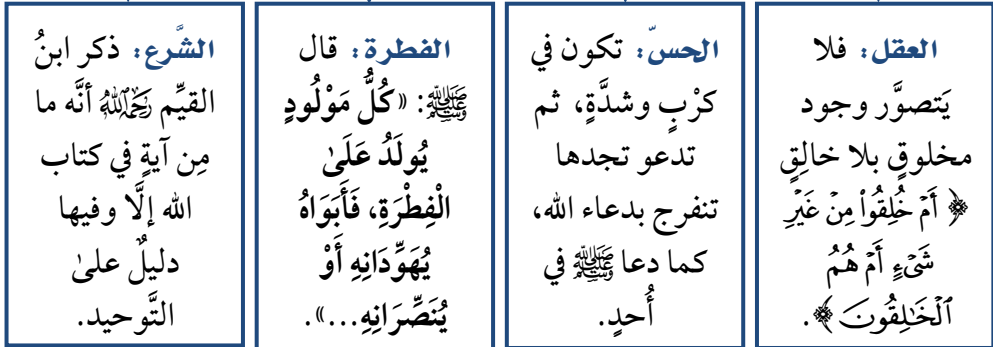 العقل: فلا
يَتصوَّر وجود
مخلوقٍ بلا خالِقٍ
﴿ أَمۡ خُلِقُواْ مِنۡ غَيۡرِ
شَيۡءٍ أَمۡ هُمُ
ٱلۡخَٰلِقُونَ ﴾.
الحسّ: تكون في
كرْبٍ وشدَّةٍ، ثم
تدعو تجدها
تنفرج بدعاء الله،
كما دعا ﷺ في
أُحدٍ.
الفطرة: قال
ﷺ: «كُلُّ مَوْلُودٍ
يُولَدُ عَلَىٰ
الْفِطْرَةِ، فَأَبَوَاهُ
يُهَوِّدَانِهِ أَوْ
يُنَصِّرَانِهِ...».
الشَّرع: ذكر ابنُ
القيِّم رَحِمَهُ اللَّهُ أنَّه ما
مِن آيةٍ في كتاب
الله إلَّا وفيها
دليلٌ علىٰ
التَّوحيد.